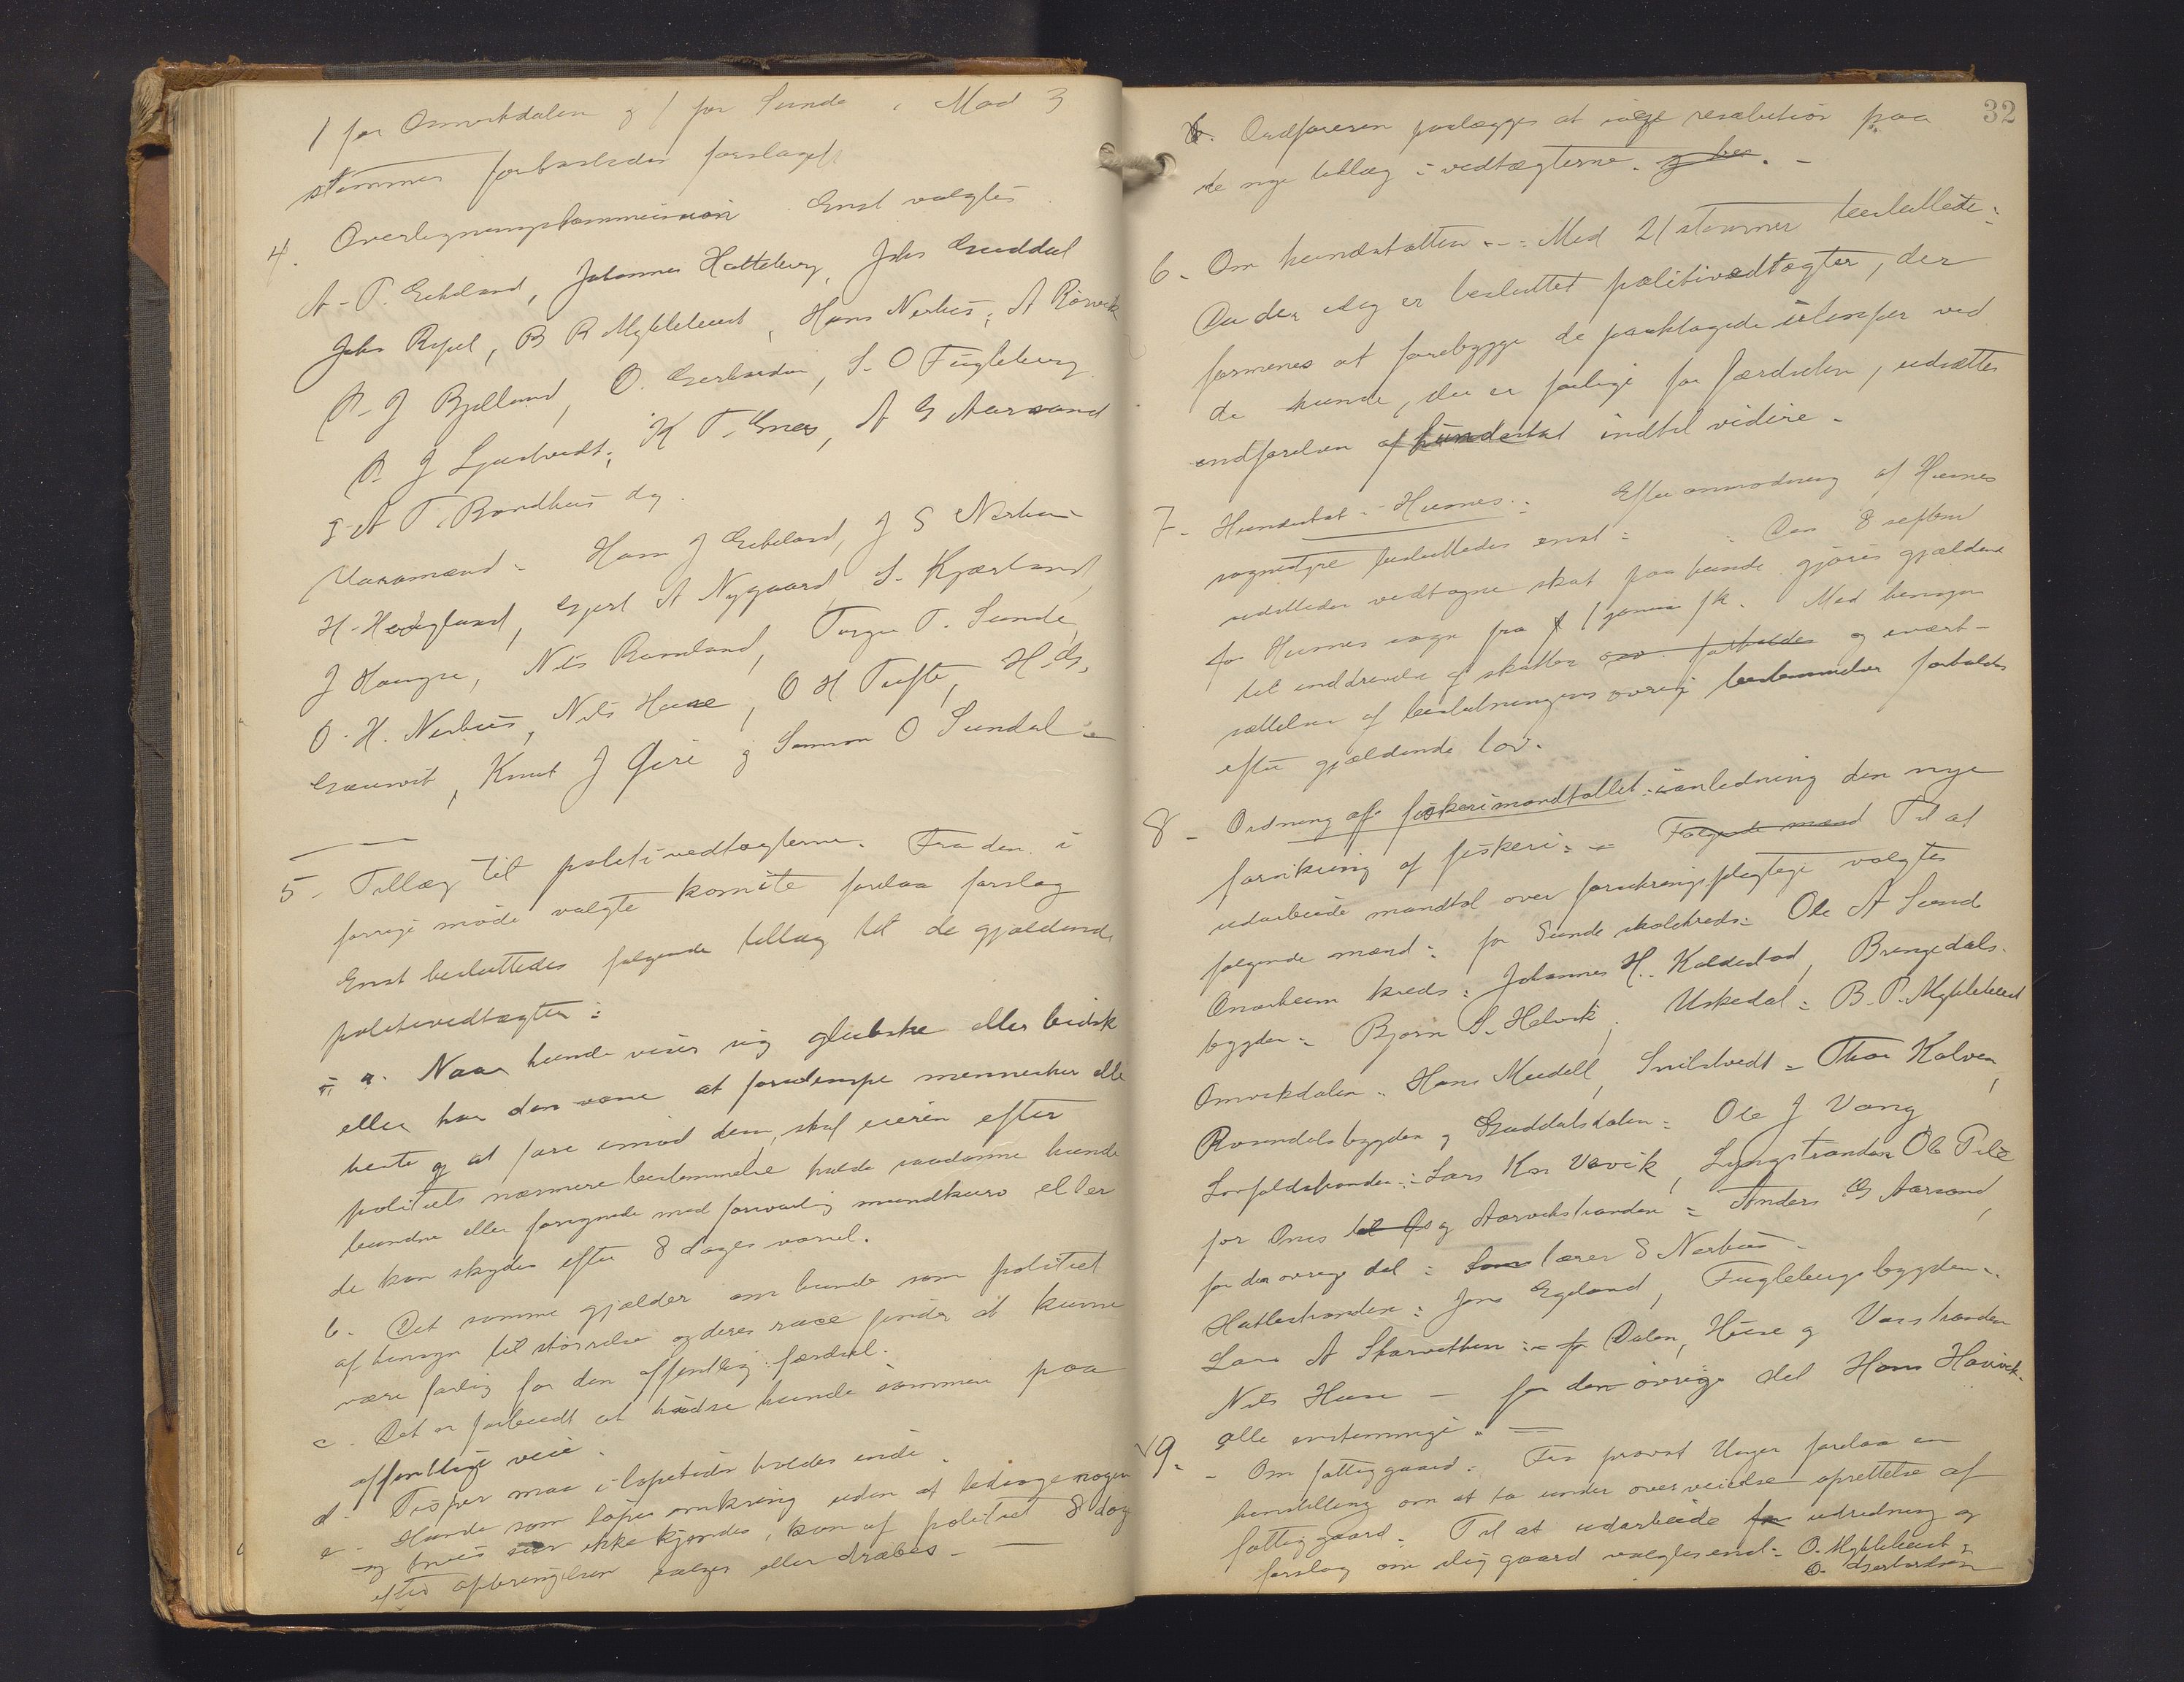 1 for Omvikdalen og 1 for Sunde. Mod 3
stemmer forkastedes forslaget.
4. Overligningskommission Enst valgtes
A. T. Eikeland, Johannes Hatteberg, Johs Guddal
Johs Rysel, B R Myklebust, Hans Nerhus, A Rörvik
P. J Bjelland, O. Gerhardsen, S. O Fugleberg
P. J Ljustvedt, K T. Enes, A G Aarsand
& A T. Bondhus dy.
Varamænd: Hans J Eikeland, J S Nerhus
H. Hedgland, Gjert A Nygaard, S. Kjærland,
J Haugse, Nils Rømeland, Torger T. Sunde,
O. H. Nerhus, Nils Huse, O H Tufte, H. G.
Gauevit, Knut J Gjere og Samson O Sundal.
5. Tillæg til politivedtægterne. Fra den i
forrige møde valgte komite forelaa forslag
Enst besluttedes følgende tillæg til de gjældende
politivedtægter:
a. Naar hunde viser sig glubske eller bidsk
eller har den vane at forulempe mennesker elle
heste og at fare imod dem, skal eieren efter
politiets nærmere bestemmelse holde saadanne hunde
bundne eller forsynede med forsvarlig mundkurv eller
de kan skydes efter 8 dages varsel.
b. Det samme gjælder om hunde som politiet
af hensyn til størrelse og deres race finder at kunne
være farlig for den offentlige færdsel.
c. Det er forbudt at hidse hunde sammen paa
offentlige veie.
d. Tisper maa i løpetiden holdes inde.
e. Hunde som løper omkring uden at ledsage nogen
og hvis eier ikke kjendes, kan af politiet 8 dage
efter opbringelsen sælges eller dræbes.
32
Ordføreren paalægges at søge resolution paa
de nye tillæg i vedtægterne. og ber.
6. Om hundeskatten: Med 21 stemmer besluttede:
Da der idag er besluttet politivedtægter, der
formenes at forebygge de paaklagede ulemper ved
de hunde, der er farlige for færdselen, udsættes
indførelsen af hundeskat indtil videre.
7. Hundeskat. Husnes: Efter anmodning af Husnes
sognestyre besluttedes enst: Den 8 septbr
vedtagne skat paa hunde gjøres gjældende
for Husnes sogn fra 1 januar fk. Med hensyn
til inddrivelse af skatten og iværk-
sættelsen af beslutningens øvrige bestemmelser forholdes
efter gjældende lov.
8. Ordning af fiskerimandtallet i anledning den nye
forsikring af fiskeri: Følgende mænd Til at
udarbeide mandtal over forsikringspligtige valgtes
følgende mænd: for Sunde skolekreds: Ole A Sunde
Onarheim kreds: Johannes H. Kaldestad, Bringedals-
bygden: Bjørn S. Helvik, Uskedal: B. P. Myklebust
Omvikdalen: Hans Meidell, Snilstvedt: Thor Kalven,
Rosendalsbygden og Guddalsdalen: Ole J Vang
Londfaldstranden: Lars Kn Vævik, Lyngstranden Ole Pile
for Ænes og Aarvikstranden: Anders G Aarsand,
for den øvrige del: lærer S Nerhus.
Hatlestranden: Jens Egeland, Fuglebergsbygden:
Lars A Skarvatten: Dalen, Huse og Vasstranden
Nils Huse — for den øvrige del Hans Hauvik.
alle enstemmige.
9. Om fattiggaard: Fra provst Unger forelaa en
henstilling om at ta under overveielse oprettelse af
fattiggaard. Til at udarbeide udredning og
forslag om slig gaard valgtes enst: O. Myklebust &
O. Gerhardsen